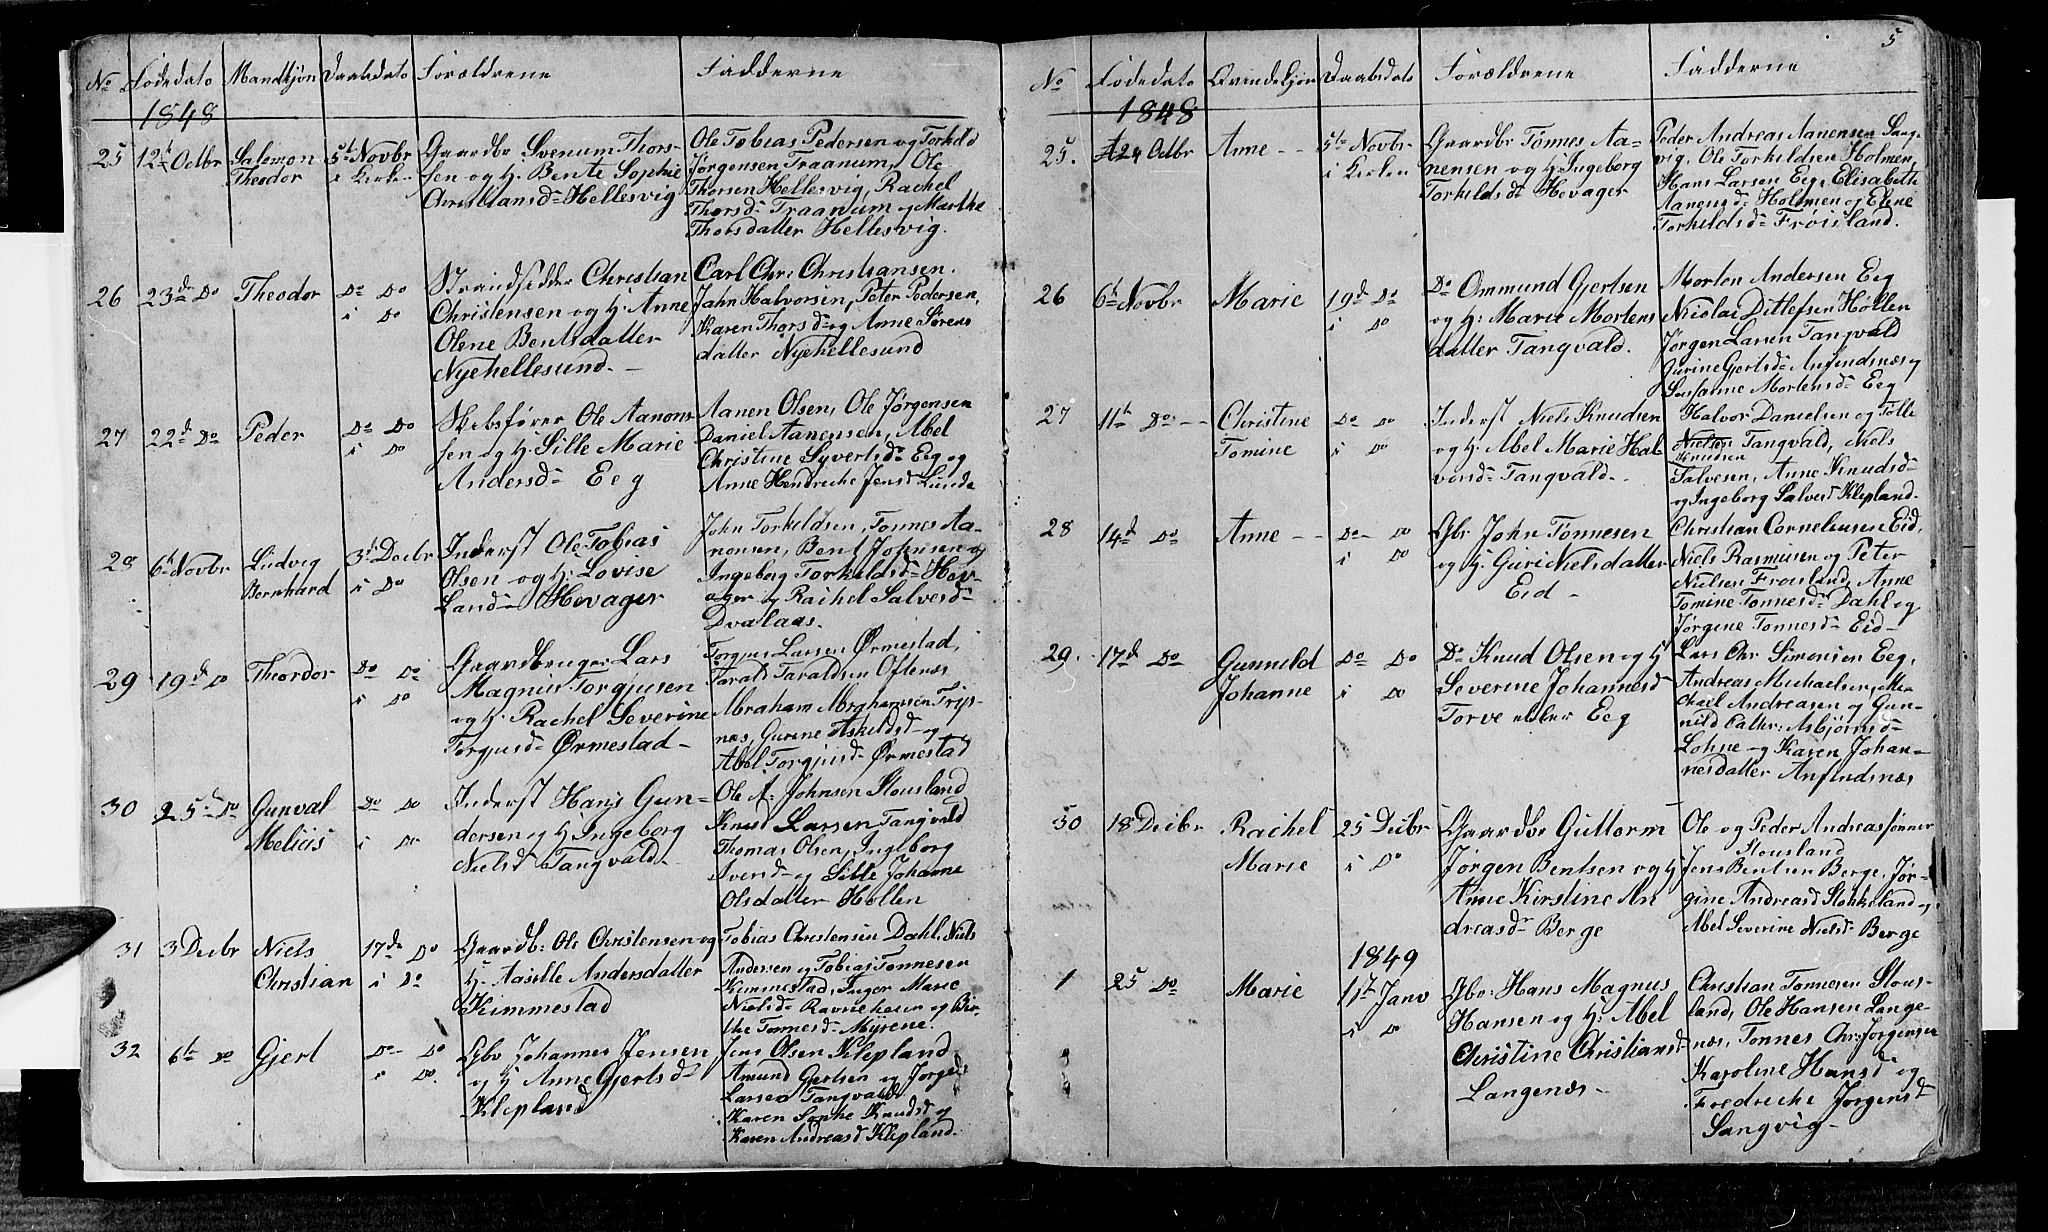 No Fødedato Mandkjøn Daabsdato Forældrene Fadderne
1848
25 12te Octbr Salomon Theodor 5te Novbr i Kirken
Gaardbr Svenum Thors-
sen og H. Bente Sophie
Christiansd. Hellesvig
Ole Tobias Pedersen og Torkild
Jørgensen Traanum, Ole
Thorsen Hellesvig, Rachel
Thorsd. Traanum og Marthe
Thorsdatter Hellesvig.
26 23de Do Theodor Do Do i Do
Strandsidder Christian
Christensen og H. Anne
Olene Bentsdatter
Nyehellesund. -
Carl Chr. Christiansen.
Jahn Halvorsen, Peter Pedersen,
Karen Thorsd. og Anne Sørens
datter Nyehellesund
27 22de Do Peder Do Do i Do
Skibsfører Ole Aanons-
sen og H. Sille Marie
Andersd. Eeg
Aanen Olsen, Ole Jørgensen
Daniel Aanensen, Abel
Christine Syvertsd. Eeg og
Anne Hendrikke Jensd. Lunde
28 6te Novbr Ludvig Bernhard 3de Decbr i Do
Inderst Ole Tobias
Olsen og H. Lovise
Land- Høvager
John Torkildsen, Tønnes Aa-
nonsen, Bent Johnsen og
Ingeborg Torkildsd. Høv-
ager og Rachel Salvesd.
Dvalaas.
29 19de Do Theordor Do Do i Do
Gaardbruger Lars
Magnus Torgjusen
og H. Rachel Severine
Torgjusd. Ørmestad -
Torgjus Larsen Ørmestad,
Tarald Taraldsen Oftenæs
Abraham Abrahamsen Trys-
næs, Gurine Askildsd. og
Abel Torgjusd. Ørmestad
30 25de Do Gunval Melius Do Do i Do
Inderst Hans Gun-
dersen og H. Ingeborg
Nielsd. Tangvald.
Ole A. Johnsen Stousland
Knud Larsen Tangvald
Thomas Olsen, Ingeborg
Iversd. og Sille Johanne
Olsdatter Høllen
31 3 Decbr Niels Christian 17de Do i Do
Gaardb: Ole Christensen og
H. Aasille Andersdatter
Kimmestad
Tobias Christensen Dahl, Niels
Andersen og Tobias Tønnesen
Kimmestad, Inger Marie
Nielsd. Ravneheien og Bir-
the Tønnesd. Myrene.
32 6te Do Gjert Do Do i Do.
Gbr Johannes Jensen
og H. Anne Gjertsd.
Klepland
Jens Olsen Klepland
Amund Gjertsen og Jørgen
Larsen Tangvald
Karen Sophie Knudsd. og
Karen Andreasd. Klepland.
5
No Fødedato Qvindekjøn Daabsdato Forældrene Fadderne
1848
25. 24 Octbr Anne - - 5te Novbr i Kirken
Gaardbr Tønnes Aa-
nensen og H. Ingeborg
Torkildsd. Høvager
Peder Andreas Aanensen Lang-
vig, Ole Torkildsen Holmen,
Hans Larsen Eeg, Elisabeth
Aanensd. Holmen og Elene
Torkildsd. Frøisland.
26 6te Novbr Marie 19de Do i Do
Do Ommund Gjertsen
og H. Marie Mortens
datter Tangvald.
Morten Andersen Eeg
Nicolai Ditlefsen Høllen
Jørgen Larsen Tangvald
Gurine Gjertsd. Anfindsnæs og
Susanne Mortensd. Eeg
27 11te Do - - Christine Tomine Do Do i Do
Inderst Niels Knudsen
og H. Abel Marie Hal
vorsd. Tangvald. -
Halvor Danielsen og Tolle
Nielsen Tangvald, Niels
Knudsen
Salvesen, Anne Knudsd.
og Ingeborg Salvesd. Klepland.
28 14de Do Anne - - Do Do i Do
Gbr John Tønnesen
og H. Guri Nielsdatter
Eid -
Christian Corneliusen Eid,
Niels Rasmusen og Peter
Nielsen Frøisland, Anne
Tomine Tønnesd. Dahl og
Jørgine Tønnesd. Eid -
29. 17de Do Gunnild Johanne Do Do i Do
Do Knud Olsen og H
Severine Johannesd
Torve eller Eeg
Lars Chr Simonsen Eeg,
Andreas Michaelsen, Mi-
chael Andreasen og Gun-
nild Cathr: Asbjørnsd.
Lohne og Karen Johan-
nesdatter Anfindsnæs
30 18 Decbr Rachel Marie 25 Decbr i Do
Gaardbr Guttorm
Jørgen Bentsen og H
Anne Kirstine An
dreasd. Berge
Ole og Peder Andreassønner
Stousland
Jens Bentsen Berge, Jør-
gine Andreasd Stokkeland og
Abel Severine Nielsd. Berge
1849
1 25 Do Marie 11te Janv i Do
Gbr: Hans Magnus
Hansen og H. Abel
Christine Christiansd.
Langenæs -
Christian Tønnesen Stous-
land, Ole Hansen Lange-
næs, Tønnes Chr: Jørgensen
Karoline Hansd og
Fredrikke Jørgensd.
Langvig -